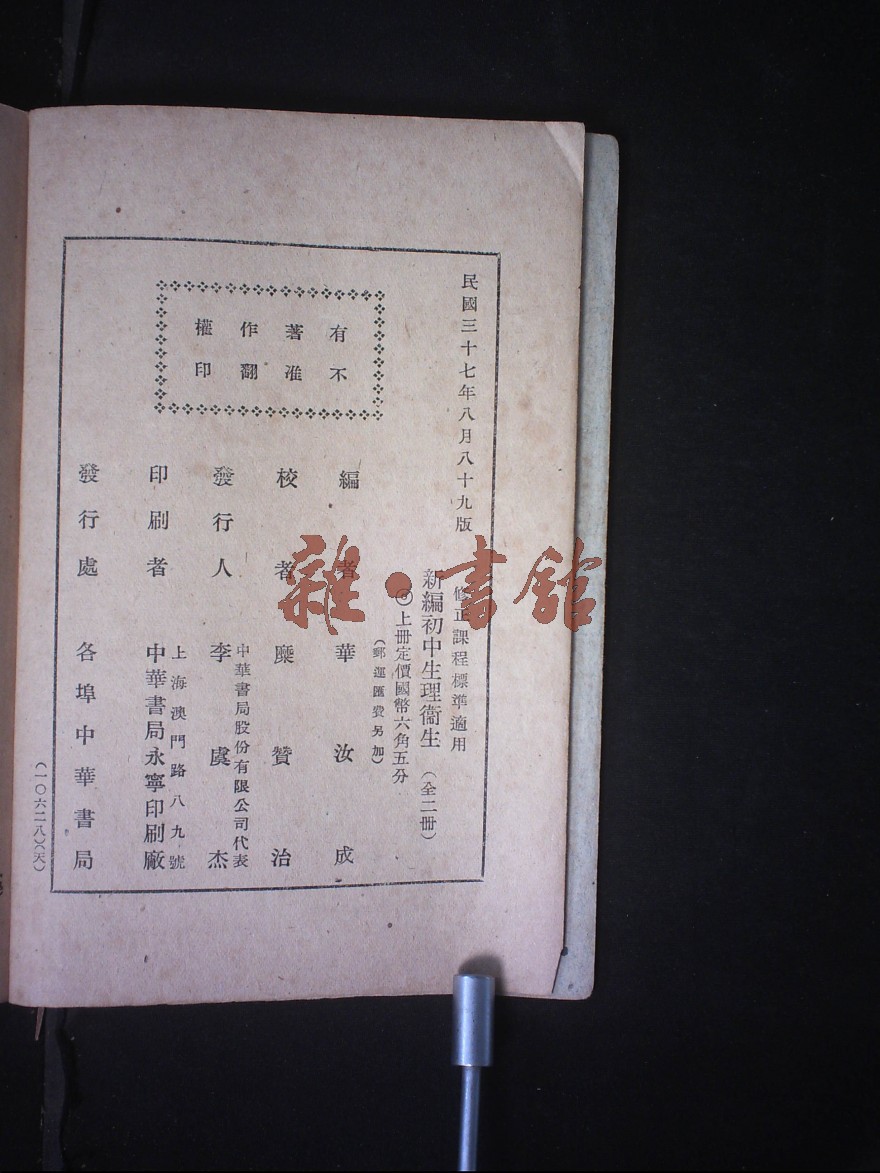 民國三十七年八月八十九版
修正課程標準適用
新編初中生理衞生(全二冊)
◎上冊定價國幣六角五分
(郵運匯費另加)
有著作權
不准翻印
編者 華汝成
校者 糜贊治
中華書局股份有限公司代表
發行人 李虞杰
上海澳門路八九號
印刷者 中華書局永寧印刷廠
發行處 各埠中華書局
(一〇六二八)(天)
雜·書館